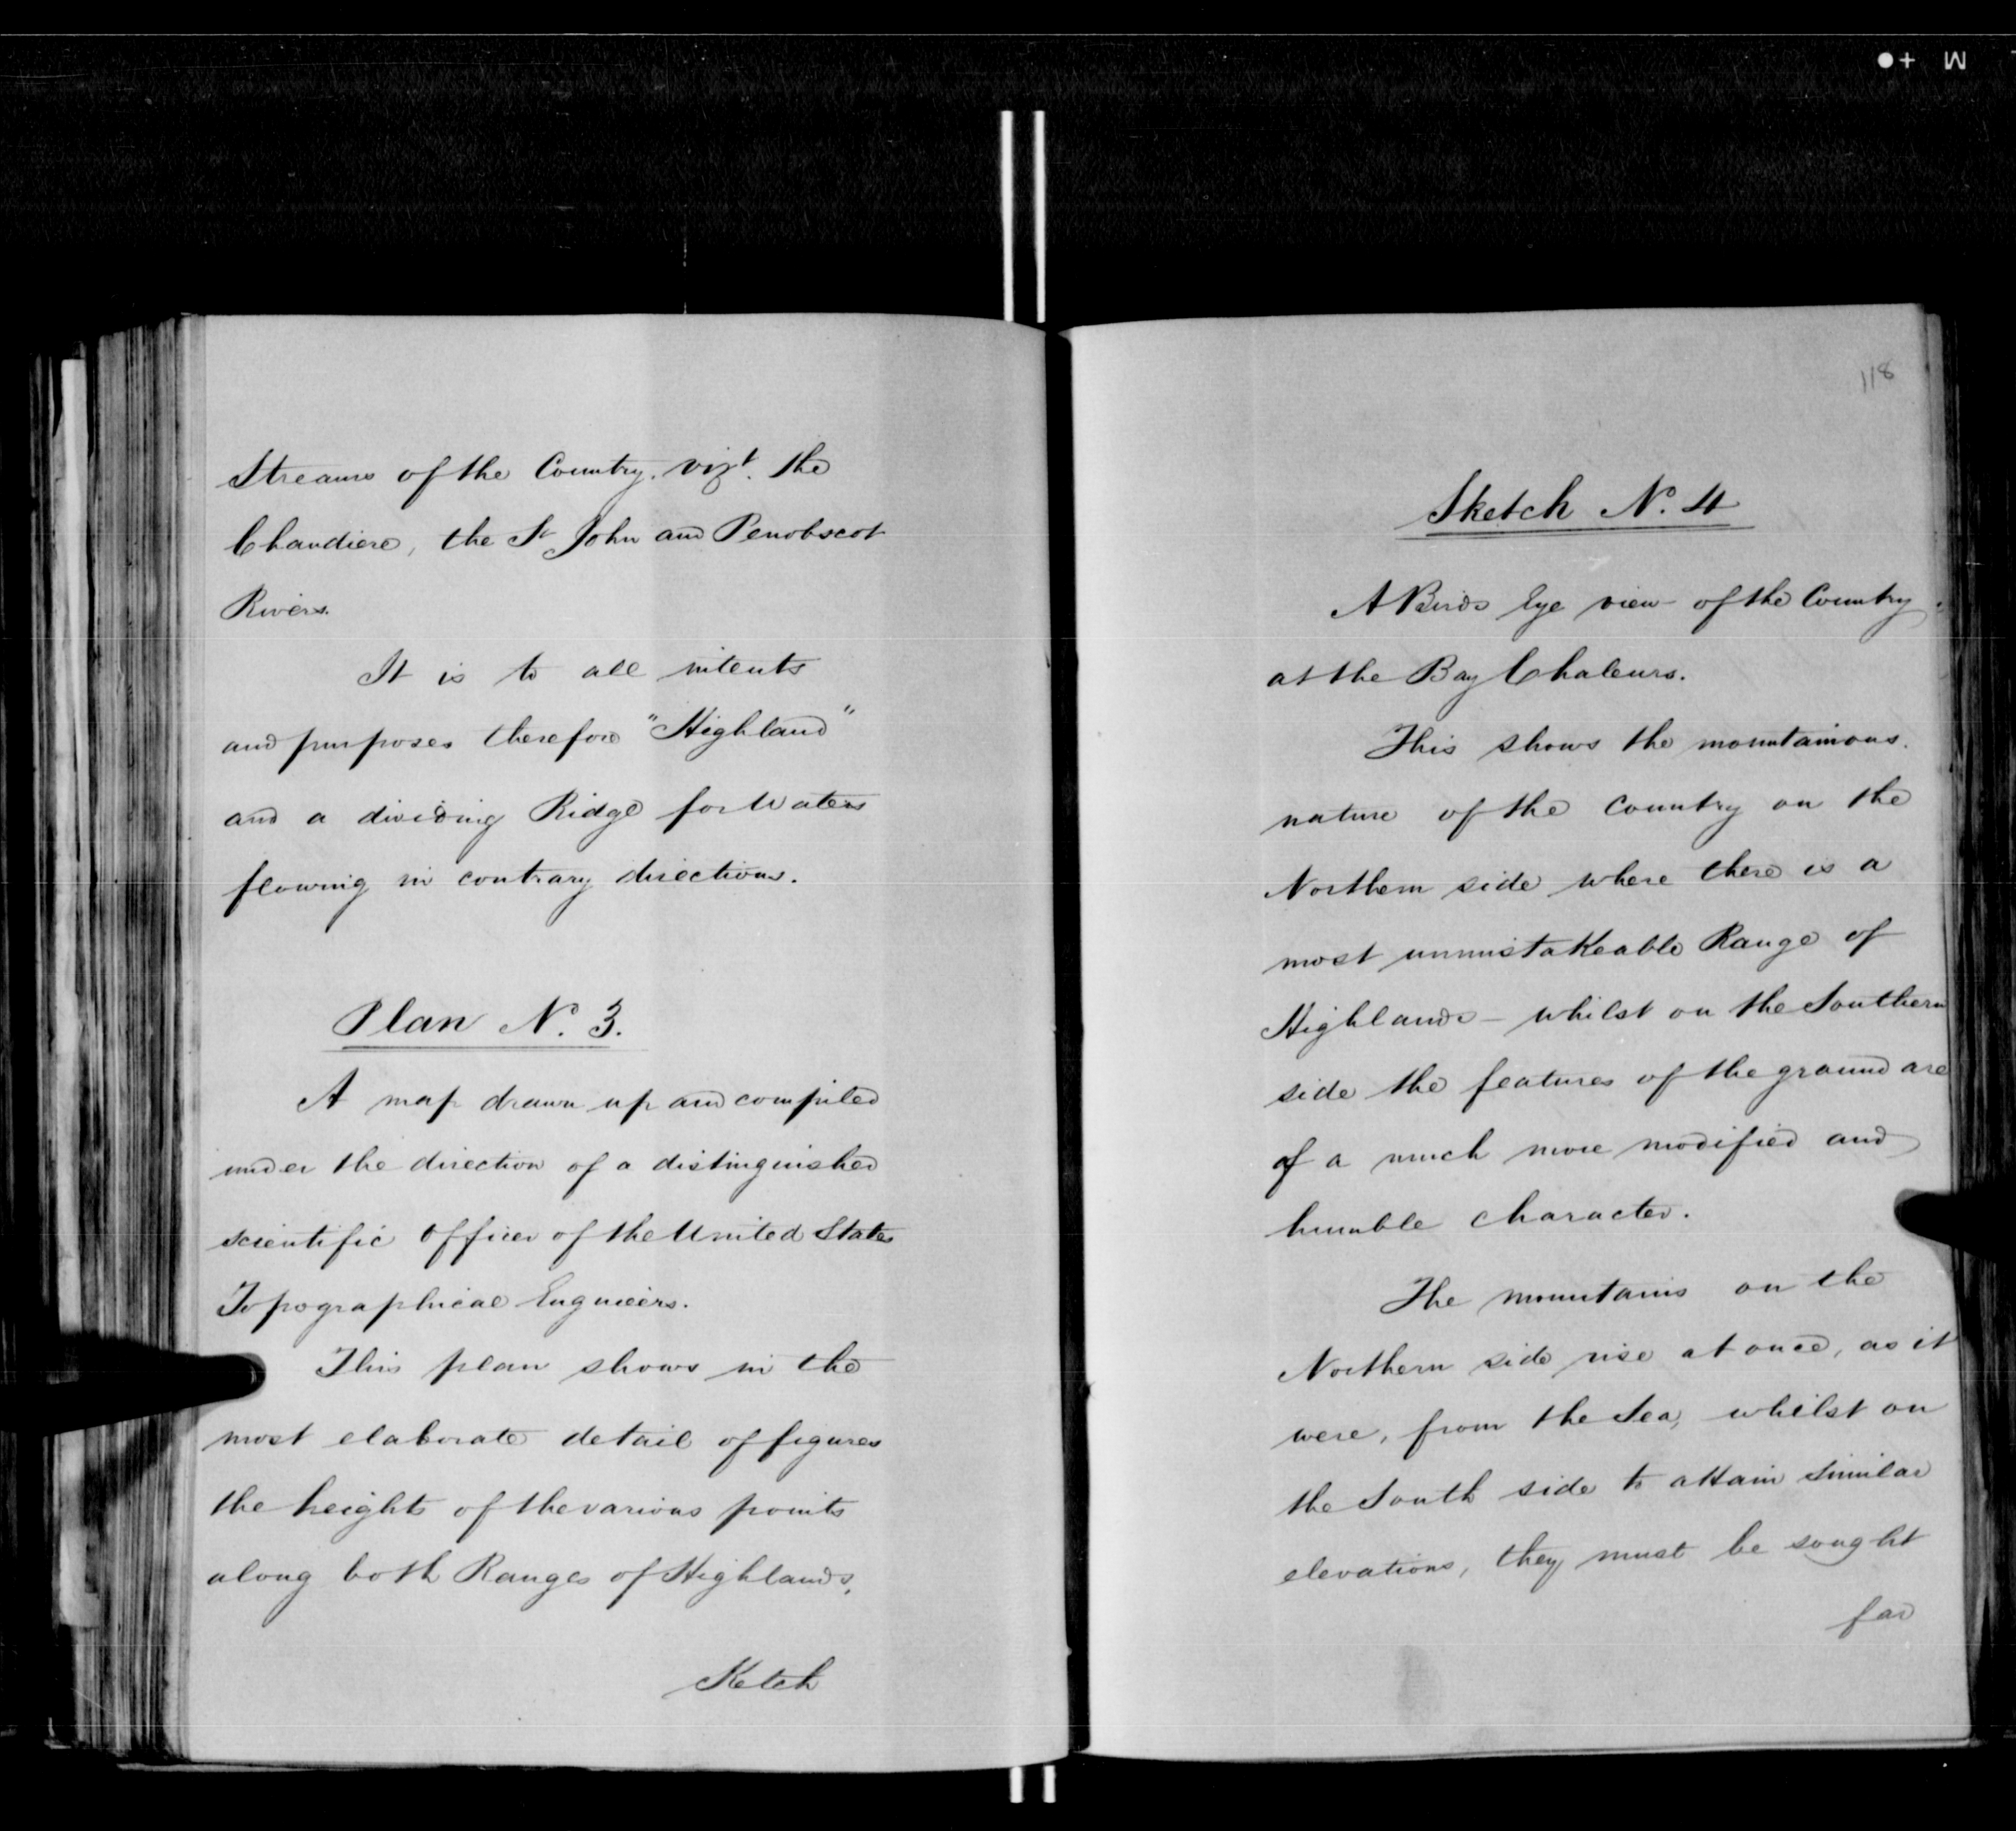 Streams of the Country. vizt. the
Chaudiere, the St John and Penobscot
Rivers.
It is to all intents
and purposes therefore "Highland"
and a dividing Ridge for Waters
flowing in contrary directions.
Plan No. 3.
A map drawn up and compiled
under the direction of a distinguished
scientific officer of the United States
Topographical Engineers.
This plan shows in the
most elaborate detail of figures
the heights of the various points
along both Ranges of Highlands.
Sketch
118
Sketch No. 4
A Birds Eye view of the Country
at the Bay Chaleurs.
This shows the mountainous
nature of the Country on the
Northern side where there is a
most unmistakeable Range of
Highlands – whilst on the Southern
side the features of the ground are
of a much more modified and
humble character.
The mountains on the
Northern side rise at once, as it
were, from the Sea, whilst on
the South side to attain similar
elevations, they must be sought
far